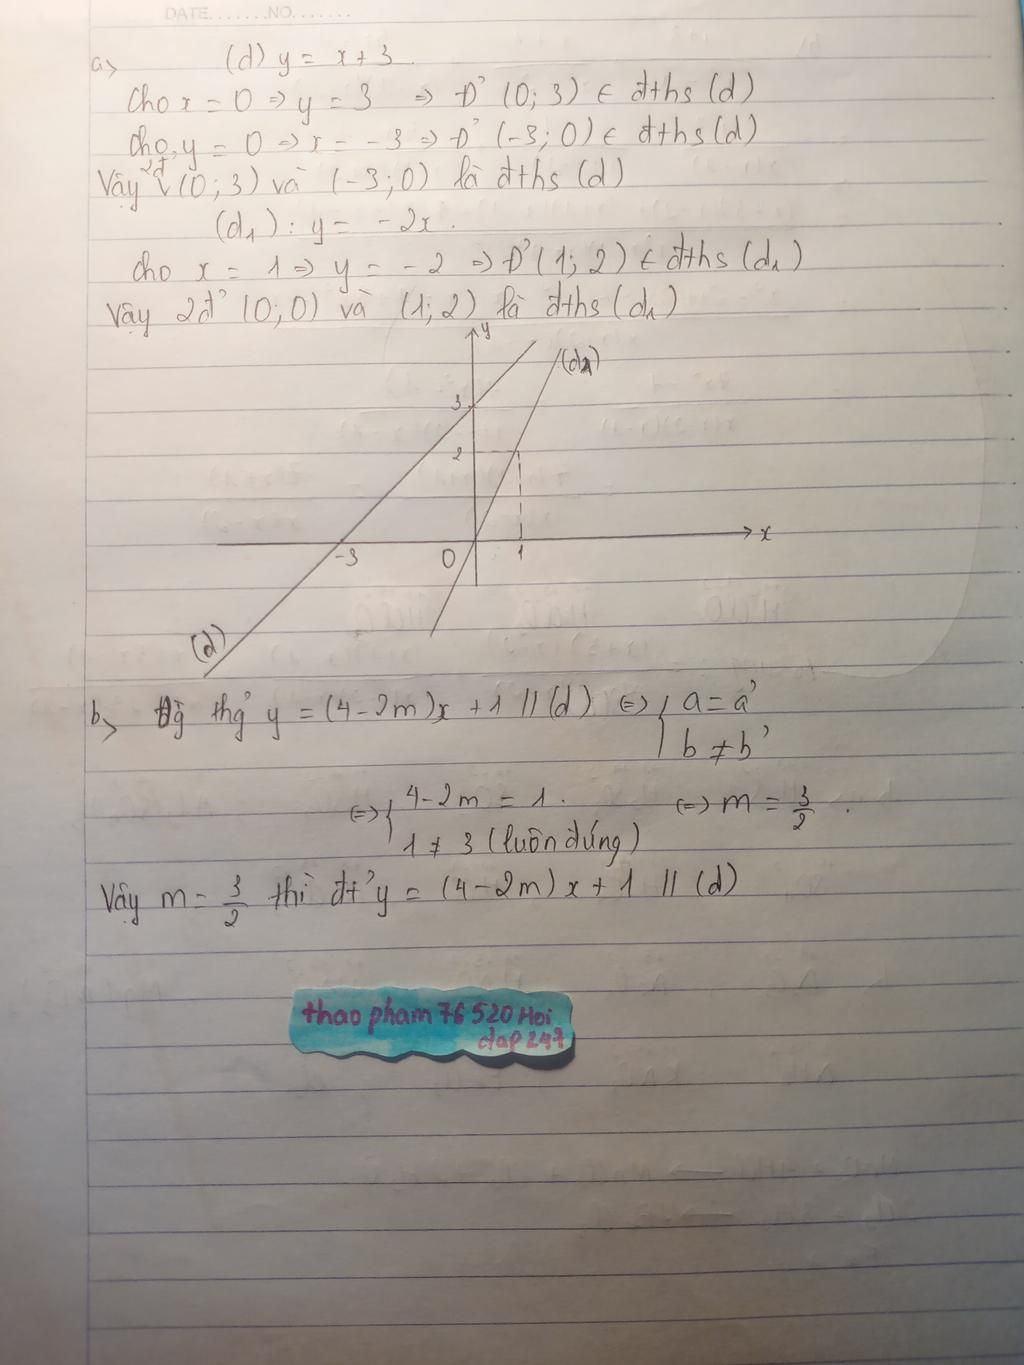 DATE.......NO.......
a> (d) y = x + 3.
Cho x = 0 => y = 3 => Đ' (0; 3) ∈ đths (d)
Cho y = 0 => x = -3 => Đ' (-3; 0) ∈ đths (d)
Vậy 2đ (0; 3) và (-3; 0) là đths (d)
(d1) : y = -2x.
Cho x = 1 => y = -2 => Đ' (1; 2) ∈ đths (d1)
Vậy 2đ' (0; 0) và (1; 2) là đths (d1)
y
(d1)
3
2
-3 0 1 x
(d)
b> y = (4-2m)x + 1 // (d) <=> { a = a'
b ≠ b'
<=> { 4-2m = 1. <=> m = 3/2.
1 ≠ 3 (luôn đúng)
Vậy m = 3/2 thì đt' y = (4-2m)x + 1 // (d)
thao pham 76 520 Hoi
dap 247